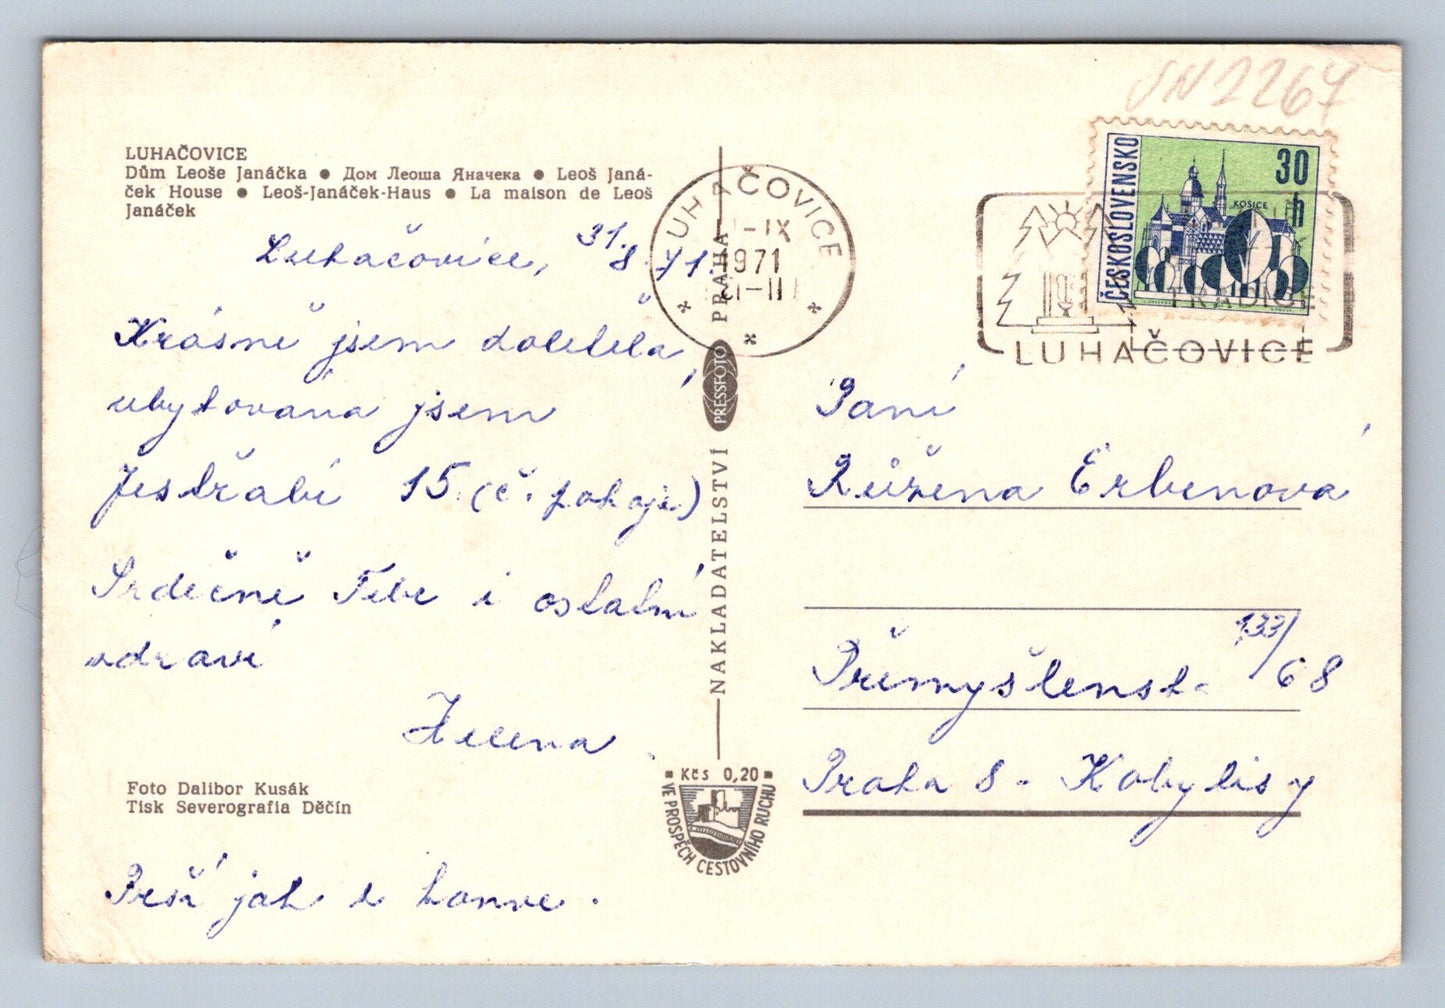 LUHAČOVICE
Dům Leoše Janáčka ● Дом Леоша Яначека ● Leoš Janá-
ček House ● Leoš-Janáček-Haus ● La maison de Leoš
Janáček
Luhačovice, 31. 8. 71.
Krásně jsem doletěla,
ubytována jsem
Jestřabí 15 (č. pokoje)
Srdečně Tebe i ostatní
zdraví
Helena
Foto Dalibor Kusák
Tisk Severografia Děčín
Prší jak z konve.
NAKLADATELSTVÍ PRESSFOTO PRAHA
Kčs 0,20
VE PROSPĚCH CESTOVNÍHO RUCHU
LUHAČOVICE
-IX
1971
TRADICE
LUHAČOVICE
ČESKOSLOVENSKO
30 h
KOŠICE
Paní
Růžena Erbenová
133/
Přemyšlensk 68
Praha 8 - Kobylisy